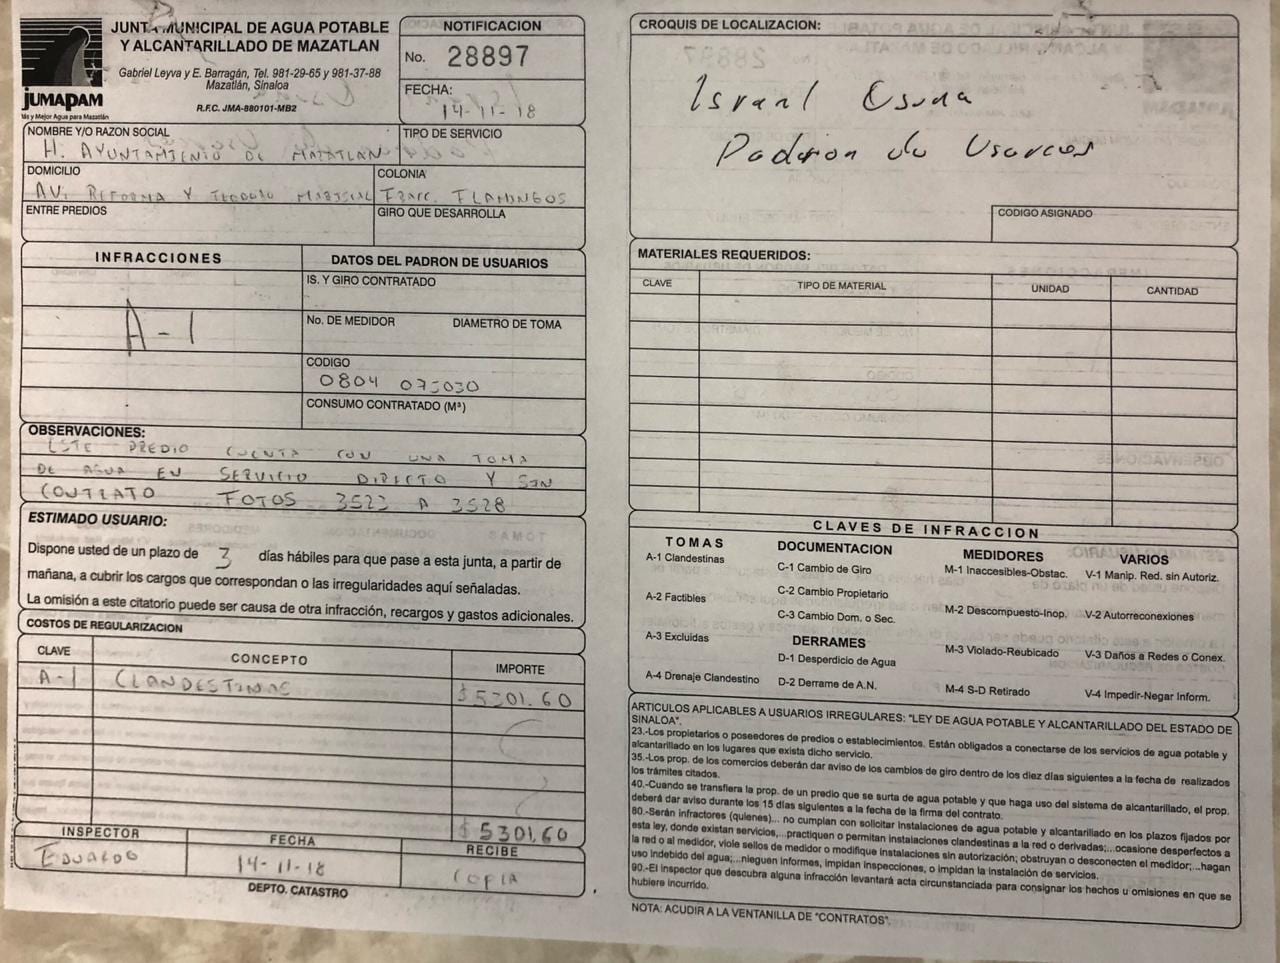 JUNTA MUNICIPAL DE AGUA POTABLE
Y ALCANTARILLADO DE MAZATLAN
Gabriel Leyva y E. Barragán, Tel. 981-29-65 y 981-37-88
Mazatlán, Sinaloa
R.F.C. JMA-880101-MB2
JUMAPAM
Más y Mejor Agua para Mazatlán
NOTIFICACION
No. 28897
FECHA:
14-11-18
NOMBRE Y/O RAZON SOCIAL
H. AYUNTAMIENTO DE MAZATLAN
TIPO DE SERVICIO
DOMICILIO
AV. REFORMA Y TEODORO MARISCAL
COLONIA
FRACC. FLAMINGOS
ENTRE PREDIOS
GIRO QUE DESARROLLA
INFRACCIONES
A-1
DATOS DEL PADRON DE USUARIOS
IS. Y GIRO CONTRATADO
No. DE MEDIDOR DIAMETRO DE TOMA
CODIGO
0804 075030
CONSUMO CONTRATADO (M³)
OBSERVACIONES:
ESTE PREDIO CUENTA CON UNA TOMA
DE AGUA EN SERVICIO DIRECTO Y SIN
CONTRATO FOTOS 3523 A 3528
ESTIMADO USUARIO:
Dispone usted de un plazo de 3 días hábiles para que pase a esta junta, a partir de
mañana, a cubrir los cargos que correspondan o las irregularidades aquí señaladas.
La omisión a este citatorio puede ser causa de otra infracción, recargos y gastos adicionales.
COSTOS DE REGULARIZACION
CLAVE CONCEPTO IMPORTE
A-1 CLANDESTINAS $5301.60
$5301.60
INSPECTOR FECHA RECIBE
EDUARDO 14-11-18 COPIA
DEPTO. CATASTRO
CROQUIS DE LOCALIZACION:
Israel Osuna
Padron de Usuarios
CODIGO ASIGNADO
MATERIALES REQUERIDOS:
CLAVE TIPO DE MATERIAL UNIDAD CANTIDAD
CLAVES DE INFRACCION
TOMAS
A-1 Clandestinas
A-2 Factibles
A-3 Excluidas
A-4 Drenaje Clandestino
DOCUMENTACION
C-1 Cambio de Giro
C-2 Cambio Propietario
C-3 Cambio Dom. o Sec.
DERRAMES
D-1 Desperdicio de Agua
D-2 Derrame de A.N.
MEDIDORES
M-1 Inaccesibles-Obstac.
M-2 Descompuesto-Inop.
M-3 Violado-Reubicado
M-4 S-D Retirado
VARIOS
V-1 Manip. Red. sin Autoriz.
V-2 Autorreconexiones
V-3 Daños a Redes o Conex.
V-4 Impedir-Negar Inform.
ARTICULOS APLICABLES A USUARIOS IRREGULARES: "LEY DE AGUA POTABLE Y ALCANTARILLADO DEL ESTADO DE
SINALOA".
23.-Los propietarios o poseedores de predios o establecimientos. Están obligados a conectarse de los servicios de agua potable y
alcantarillado en los lugares que exista dicho servicio.
35.-Los prop. de los comercios deberán dar aviso de los cambios de giro dentro de los diez días siguientes a la fecha de realizados
los trámites citados.
40.-Cuando se transfiera la prop. de un predio que se surta de agua potable y que haga uso del sistema de alcantarillado, el prop.
deberá dar aviso durante los 15 días siguientes a la fecha de la firma del contrato.
80.-Serán infractores (quienes)... no cumplan con solicitar instalaciones de agua potable y alcantarillado en los plazos fijados por
esta ley, donde existan servicios,...practiquen o permitan instalaciones clandestinas a la red o derivadas;...ocasione desperfectos a
la red o al medidor, viole sellos de medidor o modifique instalaciones sin autorización; obstruyan o desconecten el medidor;...hagan
uso indebido del agua;...nieguen informes, impidan inspecciones, o impidan la instalación de servicios.
90.-El inspector que descubra alguna infracción levantará acta circunstanciada para consignar los hechos u omisiones en que se
hubiere incurrido.
NOTA: ACUDIR A LA VENTANILLA DE "CONTRATOS".